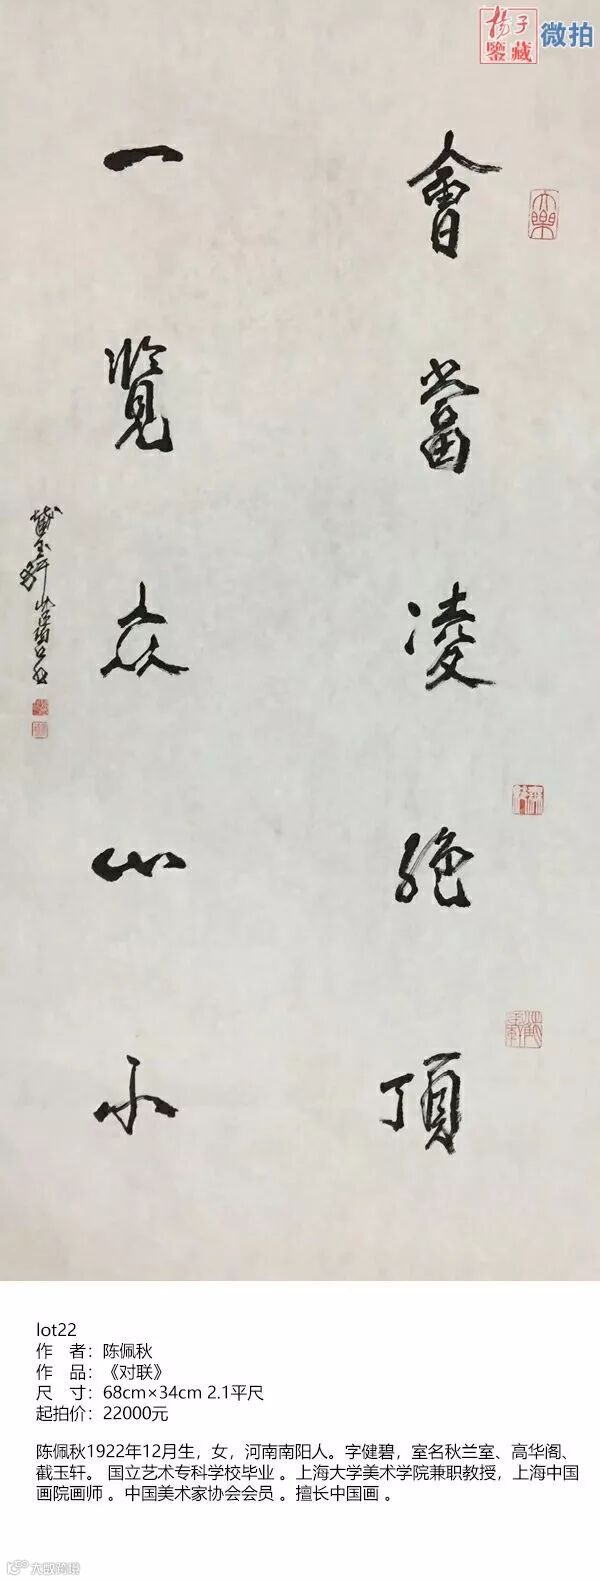 扬子
鉴藏
微拍
會當凌絕頂
一覽众山小
截玉轩 健碧
lot22
作 者：陈佩秋
作 品：《对联》
尺 寸：68cm×34cm 2.1平尺
起拍价：22000元
陈佩秋1922年12月生，女，河南南阳人。字健碧，室名秋兰室、高华阁、
截玉轩。 国立艺术专科学校毕业 。上海大学美术学院兼职教授，上海中国
画院画师 。中国美术家协会会员 。擅长中国画 。
大数跨境